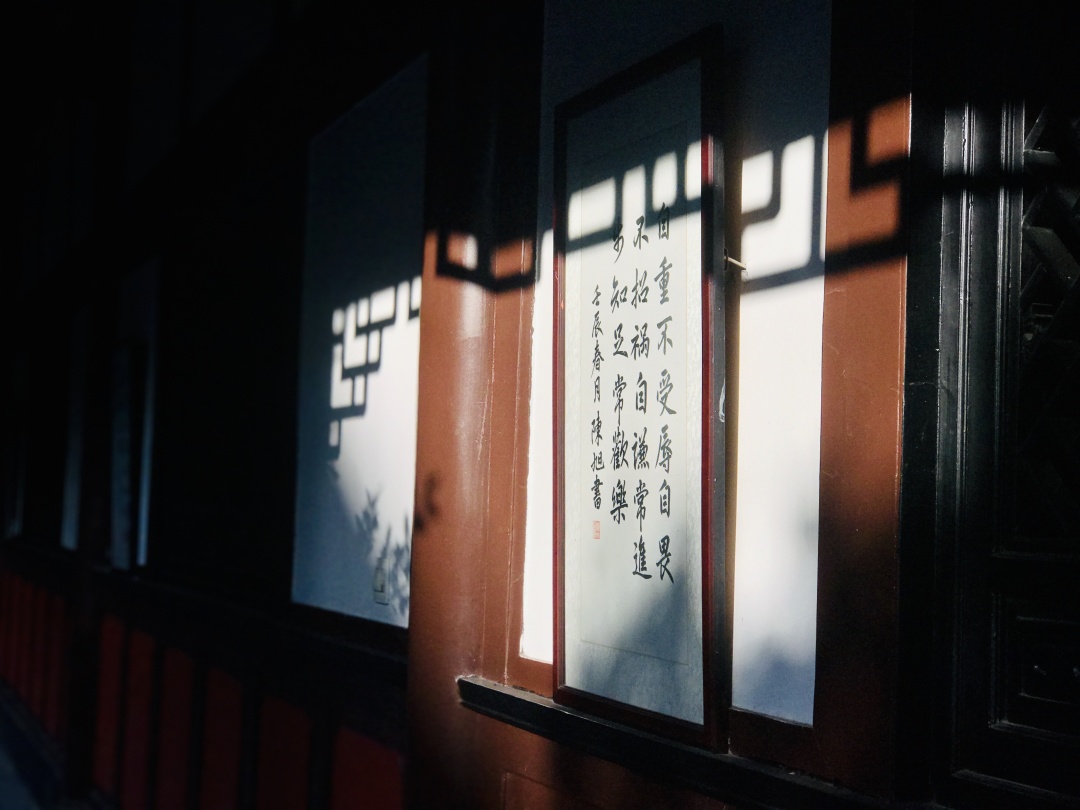 自重不受辱自畏
不招祸自謙常進
步知足常歡樂
壬辰春月陳旭書